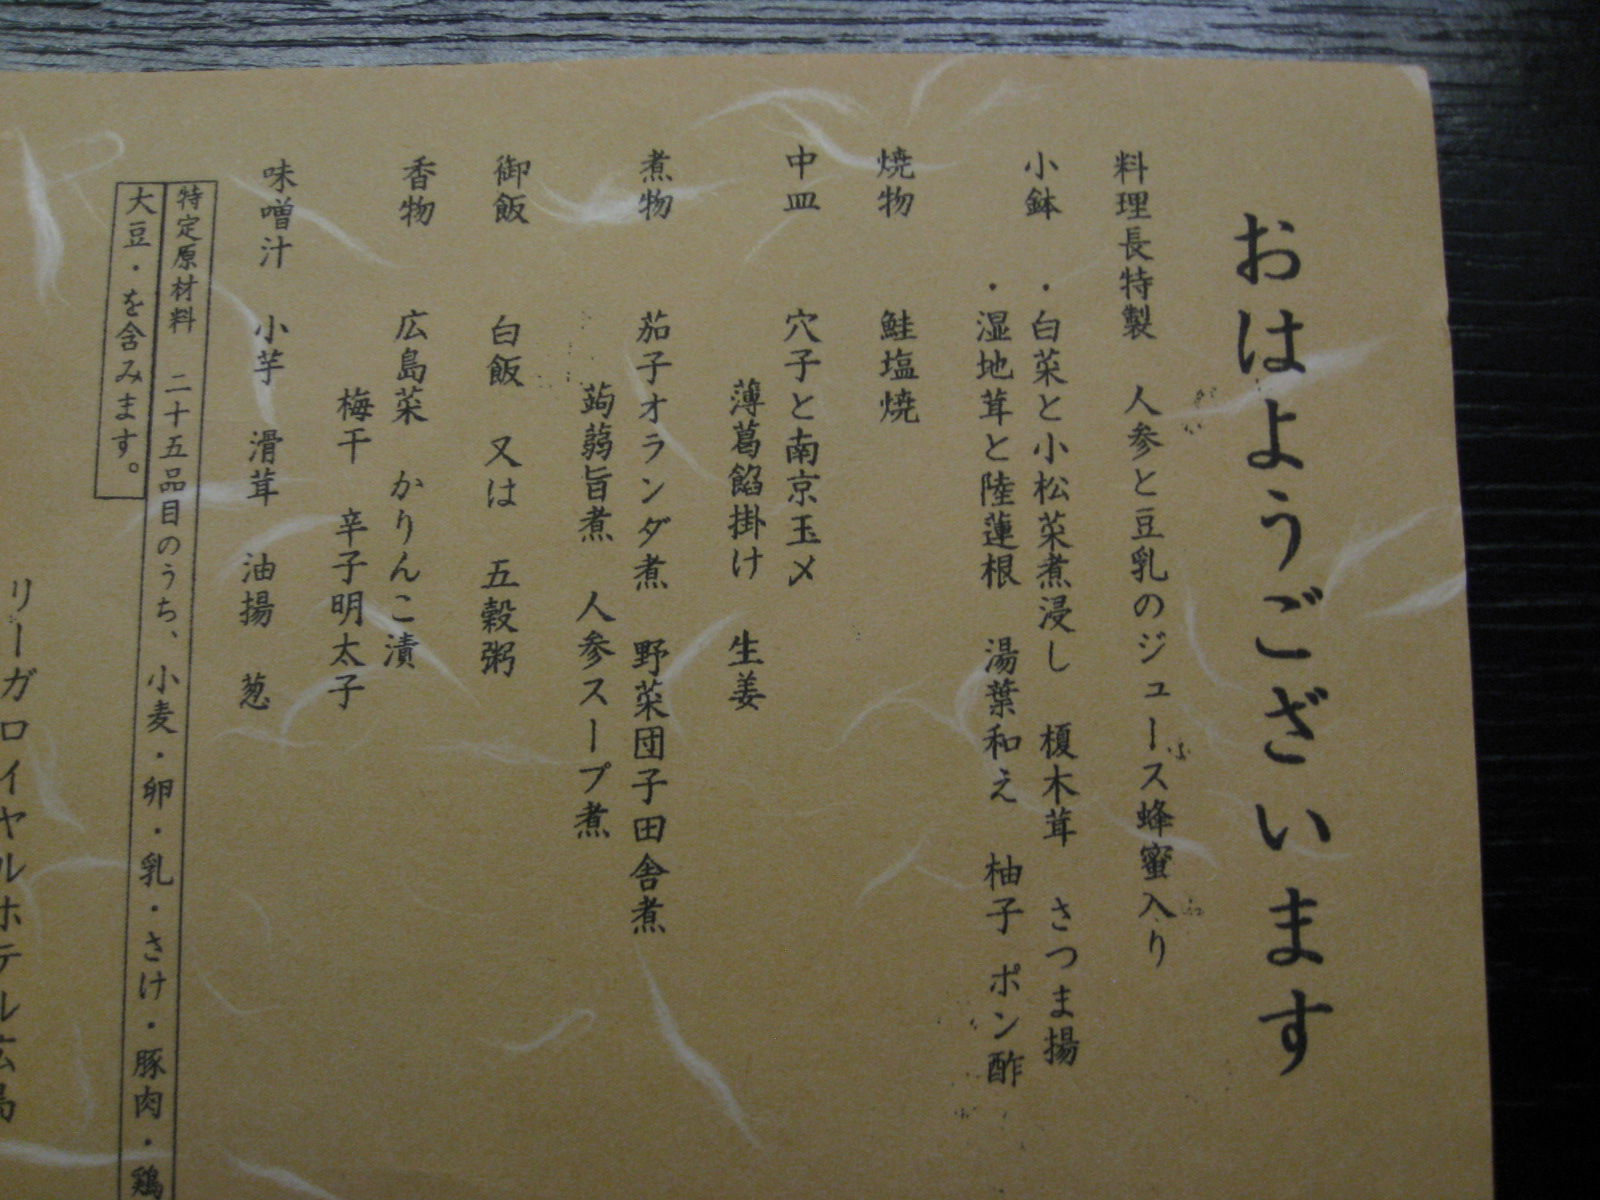 おはようございます
料理長特製　人参と豆乳のジュース蜂蜜入り
小鉢　・白菜と小松菜煮浸し　榎木茸　さつま揚
・湿地茸と陸蓮根　湯葉和え　柚子ポン酢
焼物　鮭塩焼
中皿　穴子と南京玉〆
薄葛餡掛け　生姜
煮物　茄子オランダ煮　野菜団子田舎煮
蒟蒻旨煮　人参スープ煮
御飯　白飯　又は　五穀粥
香物　広島菜　かりんこ漬
梅干　辛子明太子
味噌汁　小芋　滑茸　油揚　葱
特定原材料　二十五品目のうち、小麦・卵・乳・さけ・豚肉・鶏
大豆・を含みます。
リーガロイヤルホテル広島